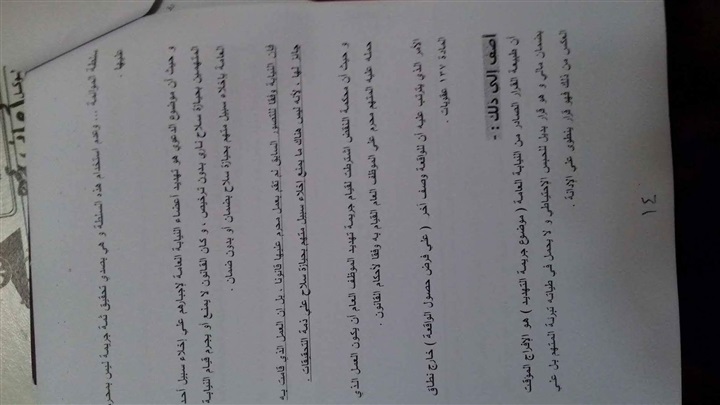 سلطة المواءمة ... وعدم استخدام هذه السلطة و هي بصدي تحقيق ثمة جريمة ليس بمجرم
عليها .
و حيث أن موضوع الدعوي هو تهديد أعضاء النيابة العامة لإجبارهم على اخلاء سبيل أحد
المتهمين بحيازة سلاح ناري بدون ترخيص ، و كان القانون لا يمنع أو يجرم قيام النيابة
العامة بإخلاء سبيل متهم بحيازة سلاح بضمان أو بدون ضمان .
فإن النيابة وفقا للتصور السابق لم تقم بعمل محرم عليها قانونا . بل ان العمل الذي قامت به
جائز لها ، لأنه ليس هناك ما يمنع اخلاء سبيل متهم بحيازة سلاح على ذمة التحقيقات .
و حيث أن محكمة النقض اشترطت لقيام جريمة تهديد الموظف العام أن يكون العمل الذي
حمله عليه المتهم محرم على الموظف العام القيام به وفقا لأحكام القانون .
الأمر الذي يترتب عليه ان للواقعة وصف أخر ( علي فرض حصول الواقعة ) خارج نطاق
المادة ١٣٧ عقوبات .
أضف إلى ذلك : -
أن طبيعة القرار الصادر من النيابة العامة ( موضوع جريمة التهديد ) هو الإفراج المؤقت
بضمان مالي و هو قرار بديل للحبس الإحتياطي و لا يحمل في طياته تبرئة المتهم بل على
العكس من ذلك فهو قرار ينطوى على الإدانة .
١٤